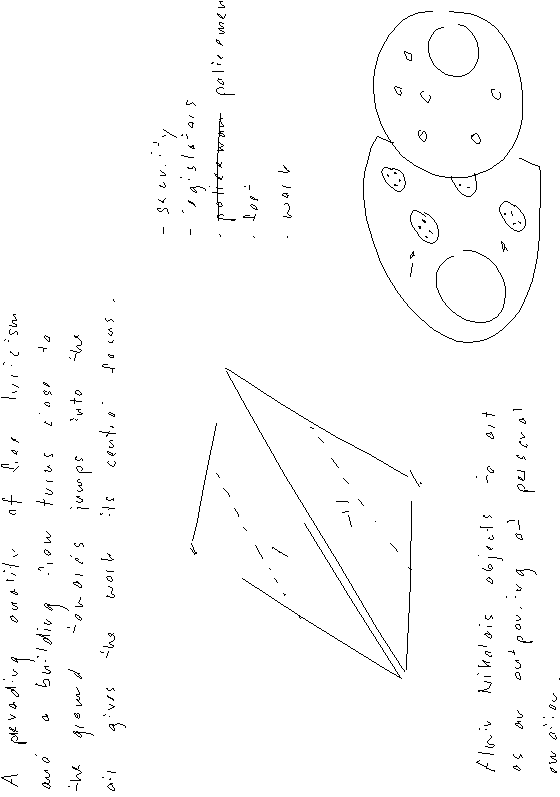 A pervading quality of free lyricism
and a building from turns close to
the ground towards jumps into the
air gives the work its central focus.
- security
- registrars
· policeman policemen
· for
· work
Alwin Nikolais objects to art
as an outpouring of personal
emotion.